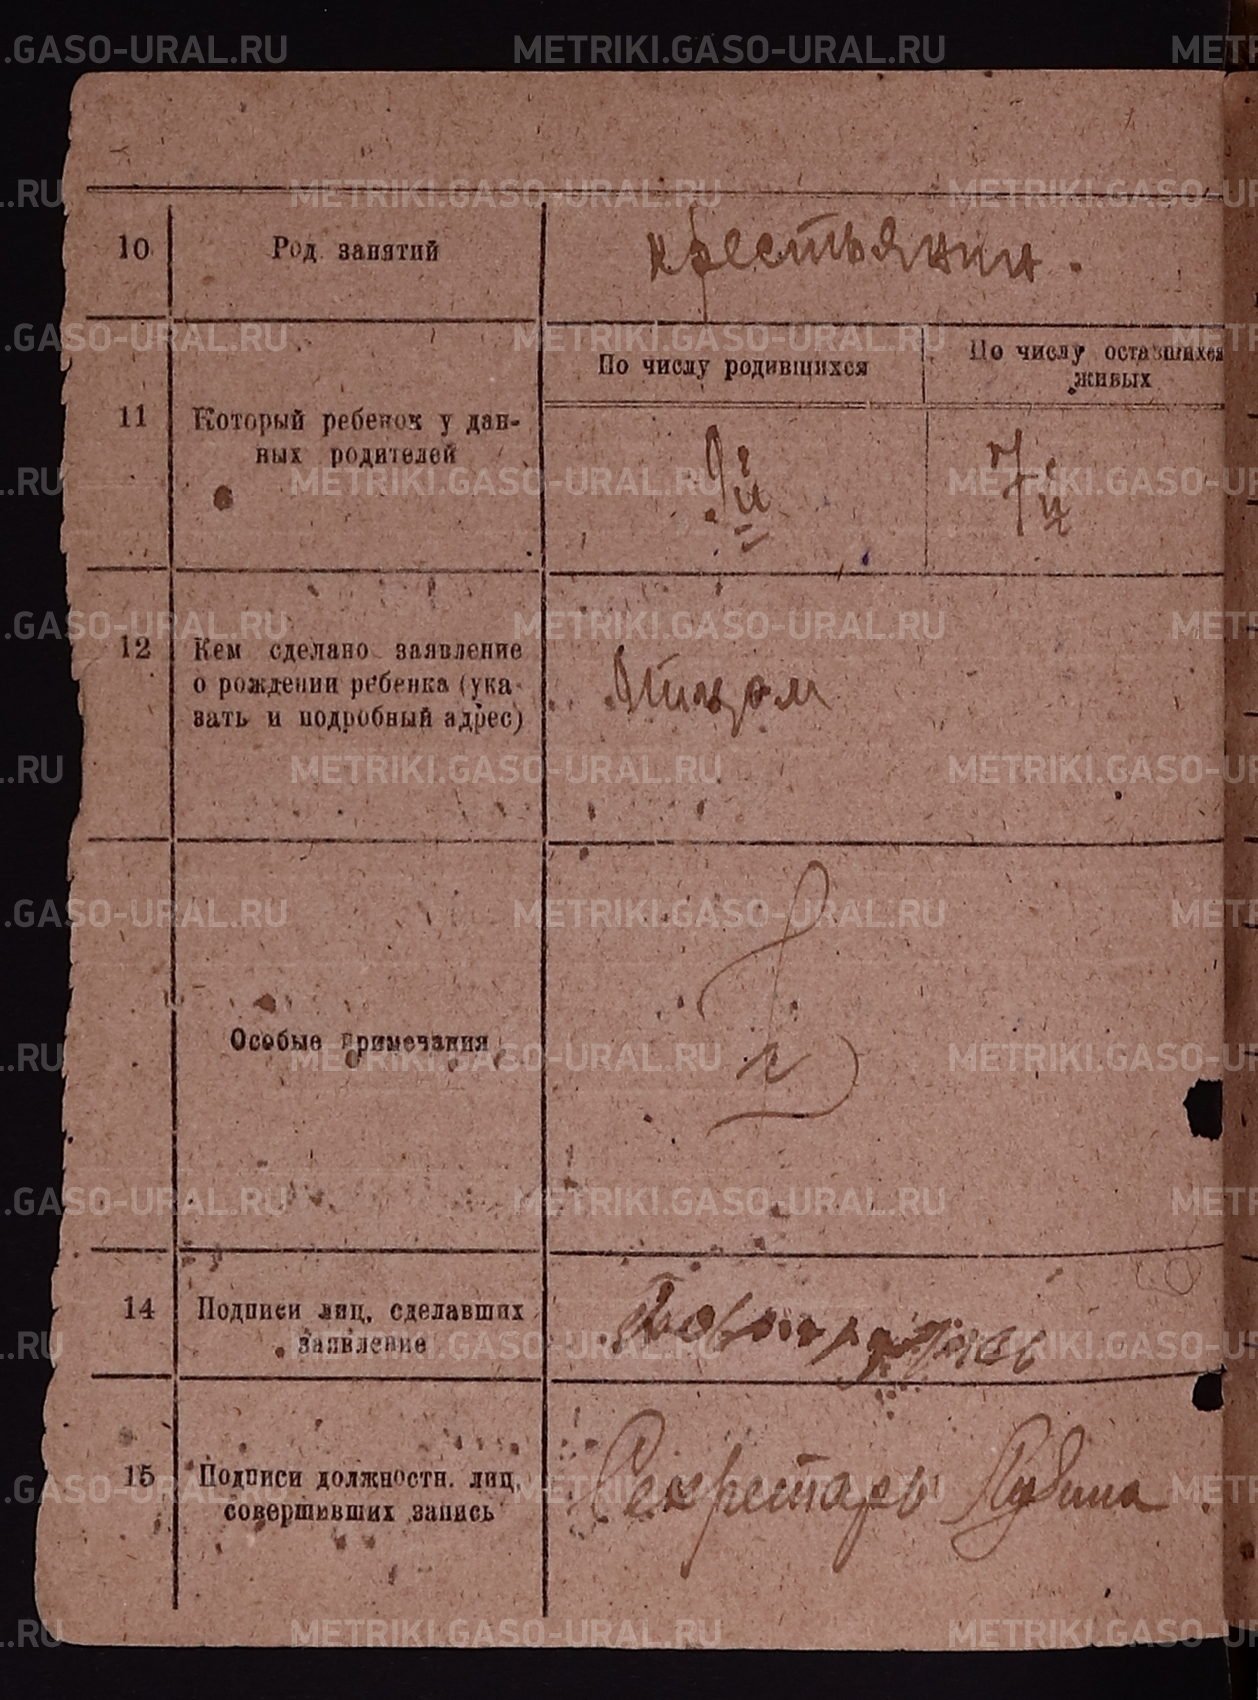 10 Род занятий крестьянин.
По числу родившихся По числу оставшихся
живых
11 Который ребенок у дан-
ных родителей
9й 7й
12 Кем сделано заявление
о рождении ребенка (ука-
зать и подробный адрес)
Отцом
Особые примечания
14 Подписи лиц, сделавших
заявление
15 Подписи должностн. лиц,
совершивших запись
Секретарь
METRIKI.GASO-URAL.RU